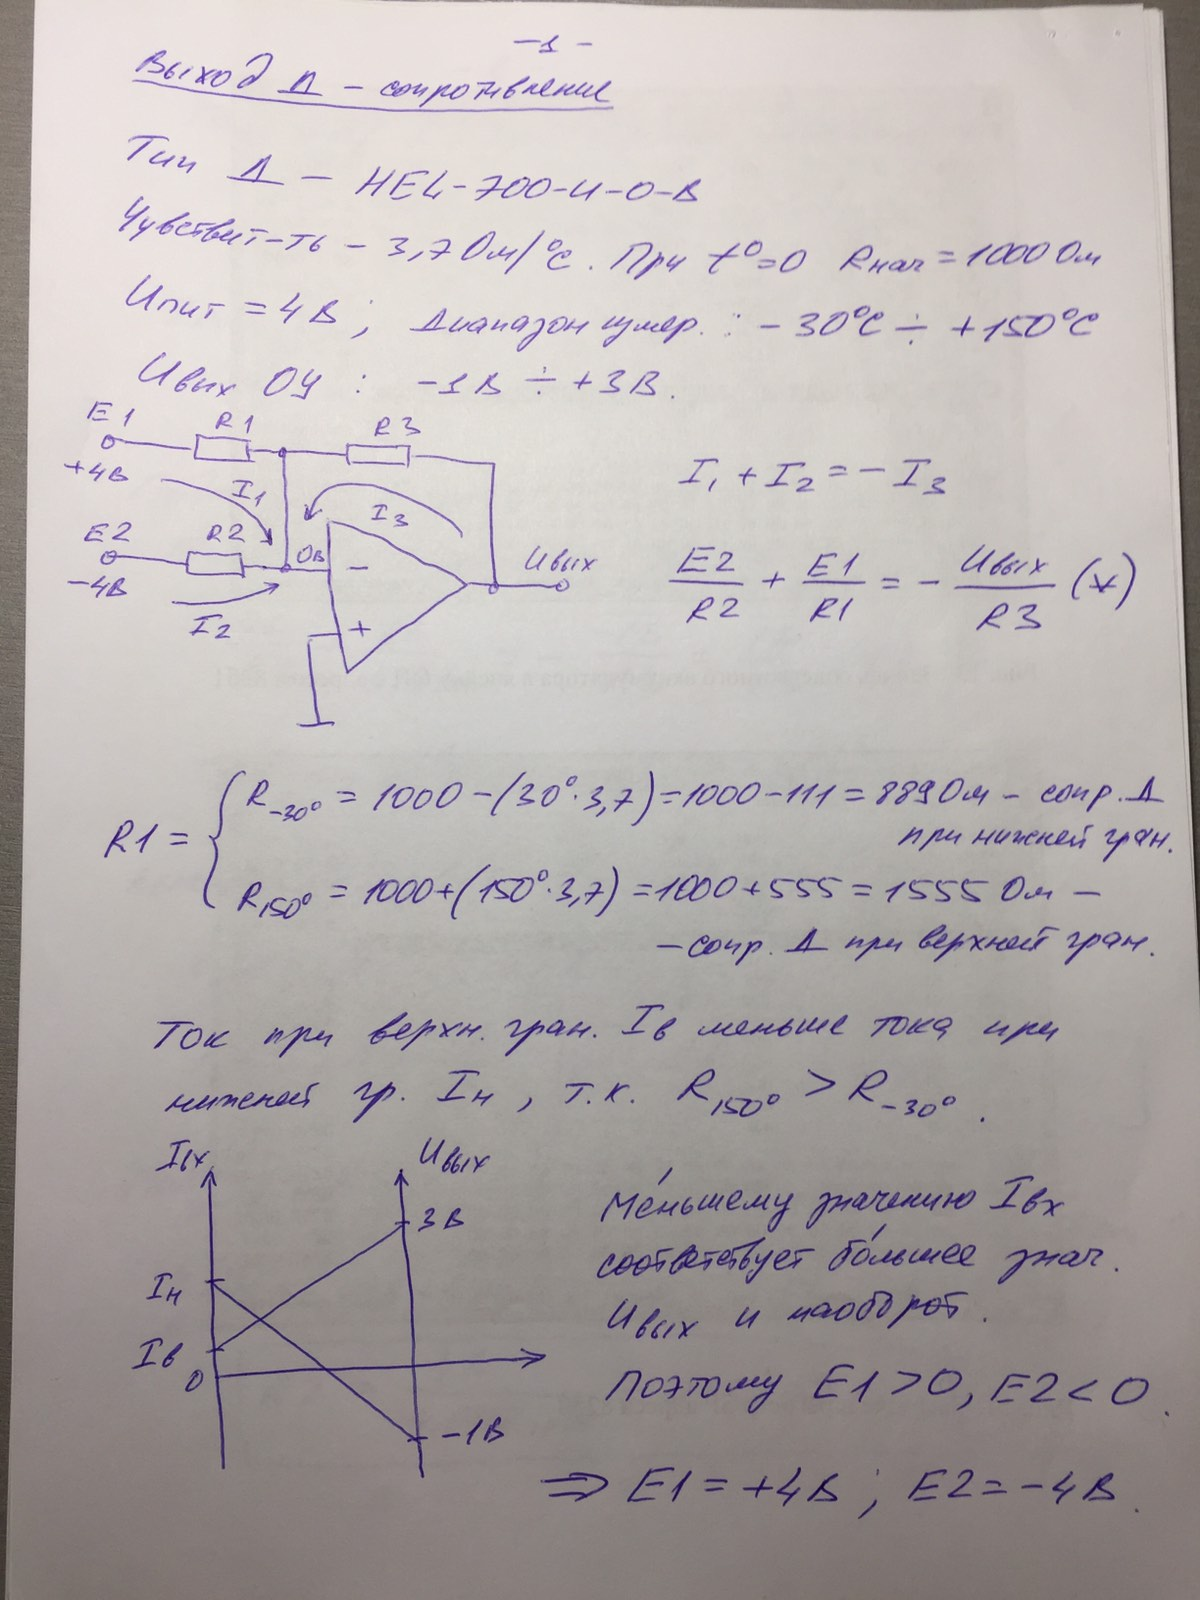 -1-
Выход Д - сопротивление
Тип Д - HEL-700-U-0-B
Чувствит-ть - 3,7 Ом/°С. При t°=0 Rнач = 1000 Ом
Uпит = 4В ; Диапазон измер. : -30°С ÷ +150°С
Uвых ОУ : -1В ÷ +3В.
E1 R1 R3
+4В I1 I3
E2 R2 0В - Uвых
-4В I2 +
I1 + I2 = - I3
E2/R2 + E1/R1 = - Uвых/R3 (*)
R1 = { R-30° = 1000 - (30°·3,7) = 1000 - 111 = 889 Ом - сопр. Д
при нижней гран.
R150° = 1000 + (150°·3,7) = 1000 + 555 = 1555 Ом -
- сопр. Д при верхней гран.
Ток при верхн. гран. Iв меньше тока при
нижней гр. Iн , т.к. R150° > R-30° .
Iвх Uвых
3В
Iн
Iв
0
-1В
Ме́ньшему значению Iвх
соответствует бо́льшее знач.
Uвых и наоборот.
Поэтому E1 > 0, E2 < 0.
⇒ E1 = +4В ; E2 = -4В.